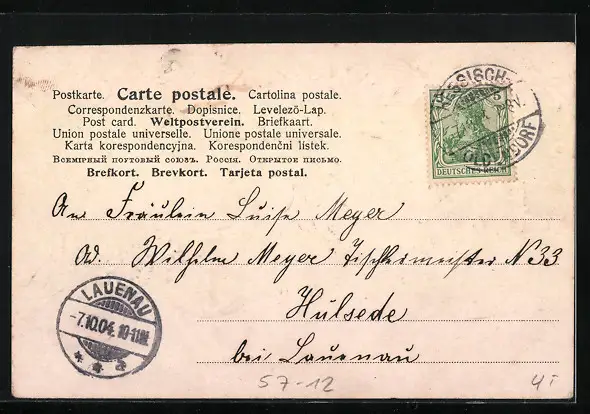 Postkarte. Carte postale. Cartolina postale.
Correspondenzkarte. Dopisnice. Levelező-Lap.
Post card. Weltpostverein. Briefkaart.
Union postale universelle. Unione postale universale.
Karta korespondencyjna. Korespondenční lístek.
Всемірный почтовый союзъ. Россія. Открытое письмо.
Brefkort. Brevkort. Tarjeta postal.
HESSISCH-
OLDENDORF
5
DEUTSCHES REICH
An Fräulein Luise Meyer
Ad. Wilhelm Meyer Tischlermeister N 33
Hülsede
bei Lauenau
LAUENAU
-7.10.04. 10-11
* * a
57-12